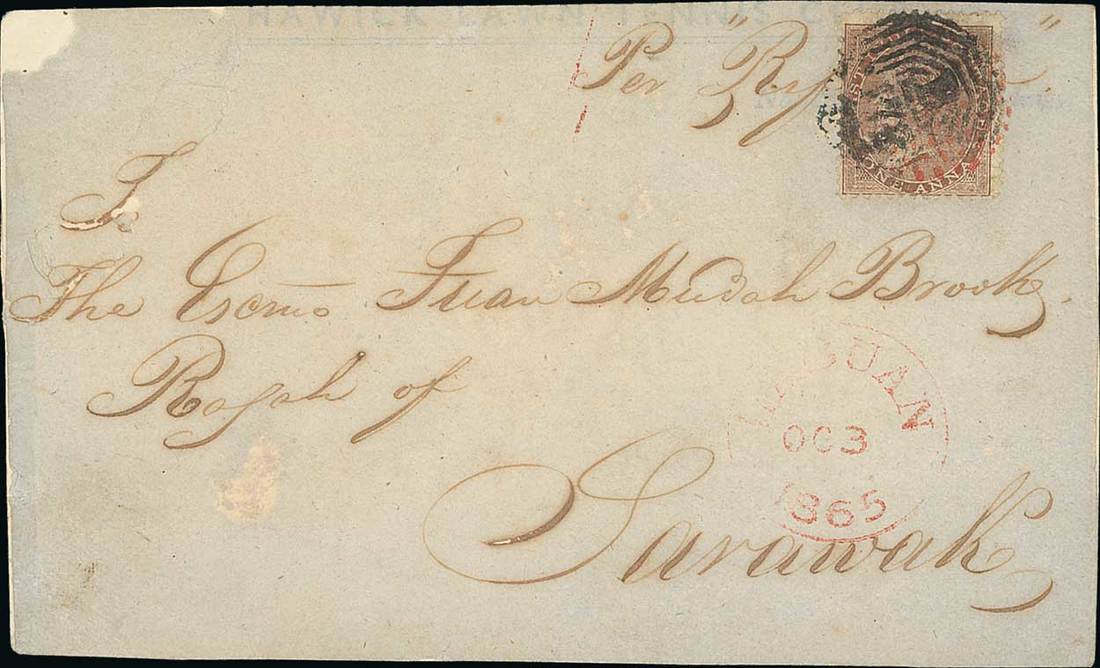 HAWICK LAWN TENNIS
Per "
ONE ANNA
To
The Escmo Tuan Mudah Brooke,
Rajah of
Sarawak
LABUAN
OC 3
1865